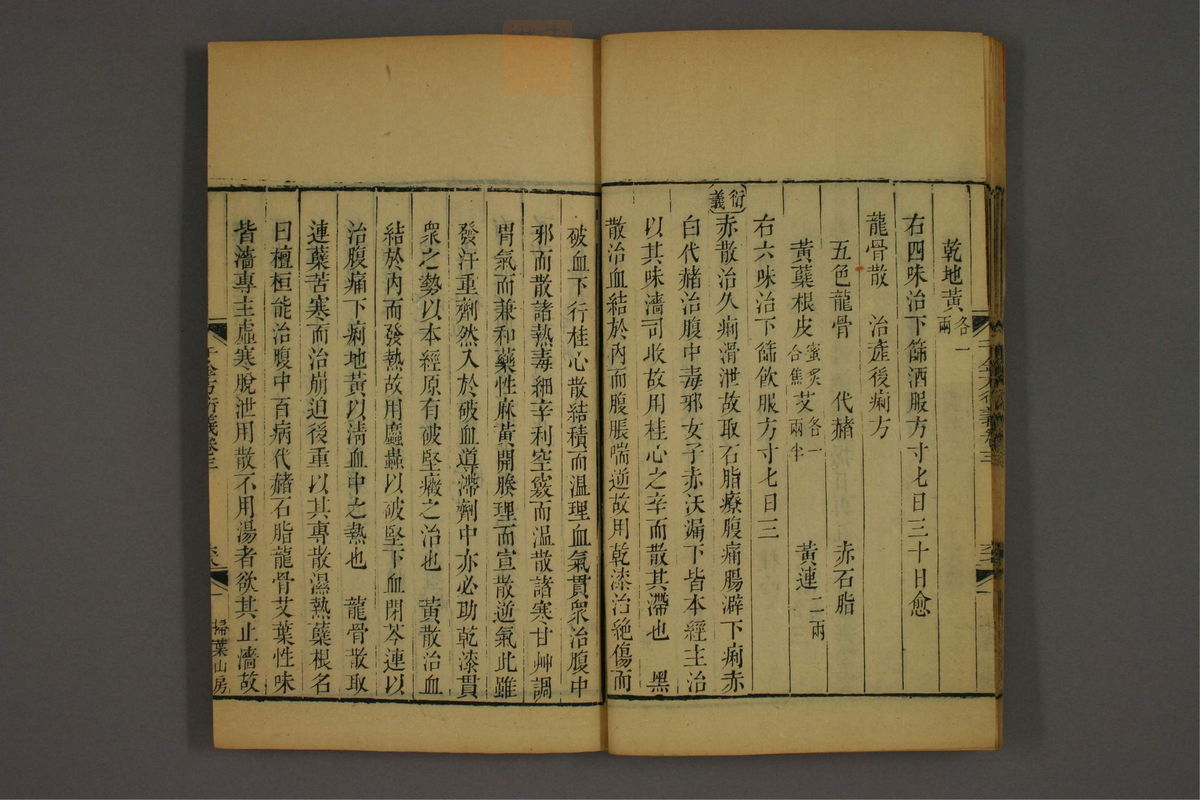 乾地黃各一兩
右四味治下篩酒服方寸匕日三十日愈
龍骨散　治產後痢方
五色龍骨　代赭　赤石脂
黃蘗根皮蜜炙合焦　艾各一兩半　黃連二兩
右六味治下篩飲服方寸匕日三
衍義
赤散治久痢滑泄故取石脂療腹痛腸澼下痢赤
白代赭治腹中毒邪女子赤沃漏下皆本經主治
以其味濇可收故用桂心之辛而散其滯也　黑
散治血結於內而腹脹喘逆故用乾漆治絶傷而
破血下行桂心散結積而溫理血氣貫衆治腹中
邪而散諸熱毒細辛利空竅而溫散諸寒甘艸調
胃氣而兼和藥性麻黃開腠理而宣散逆氣此雖
發汗重劑然入於破血導滯劑中亦必功乾漆貫
衆之勢以本經原有破堅癥之治也　黃散治血
結於內而發熱故用䗪蟲以破堅下血閉芩連以
治腹痛下痢地黃以清血中之熱也　龍骨散取
連蘗苦寒而治崩迫後重以其專散濕熱蘗根名
曰檀桓能治腹中百病代赭石脂龍骨艾葉性味
皆濇專主虛寒脫泄用散不用湯者欲其止濇故
千金方衍義卷三
掃葉山房